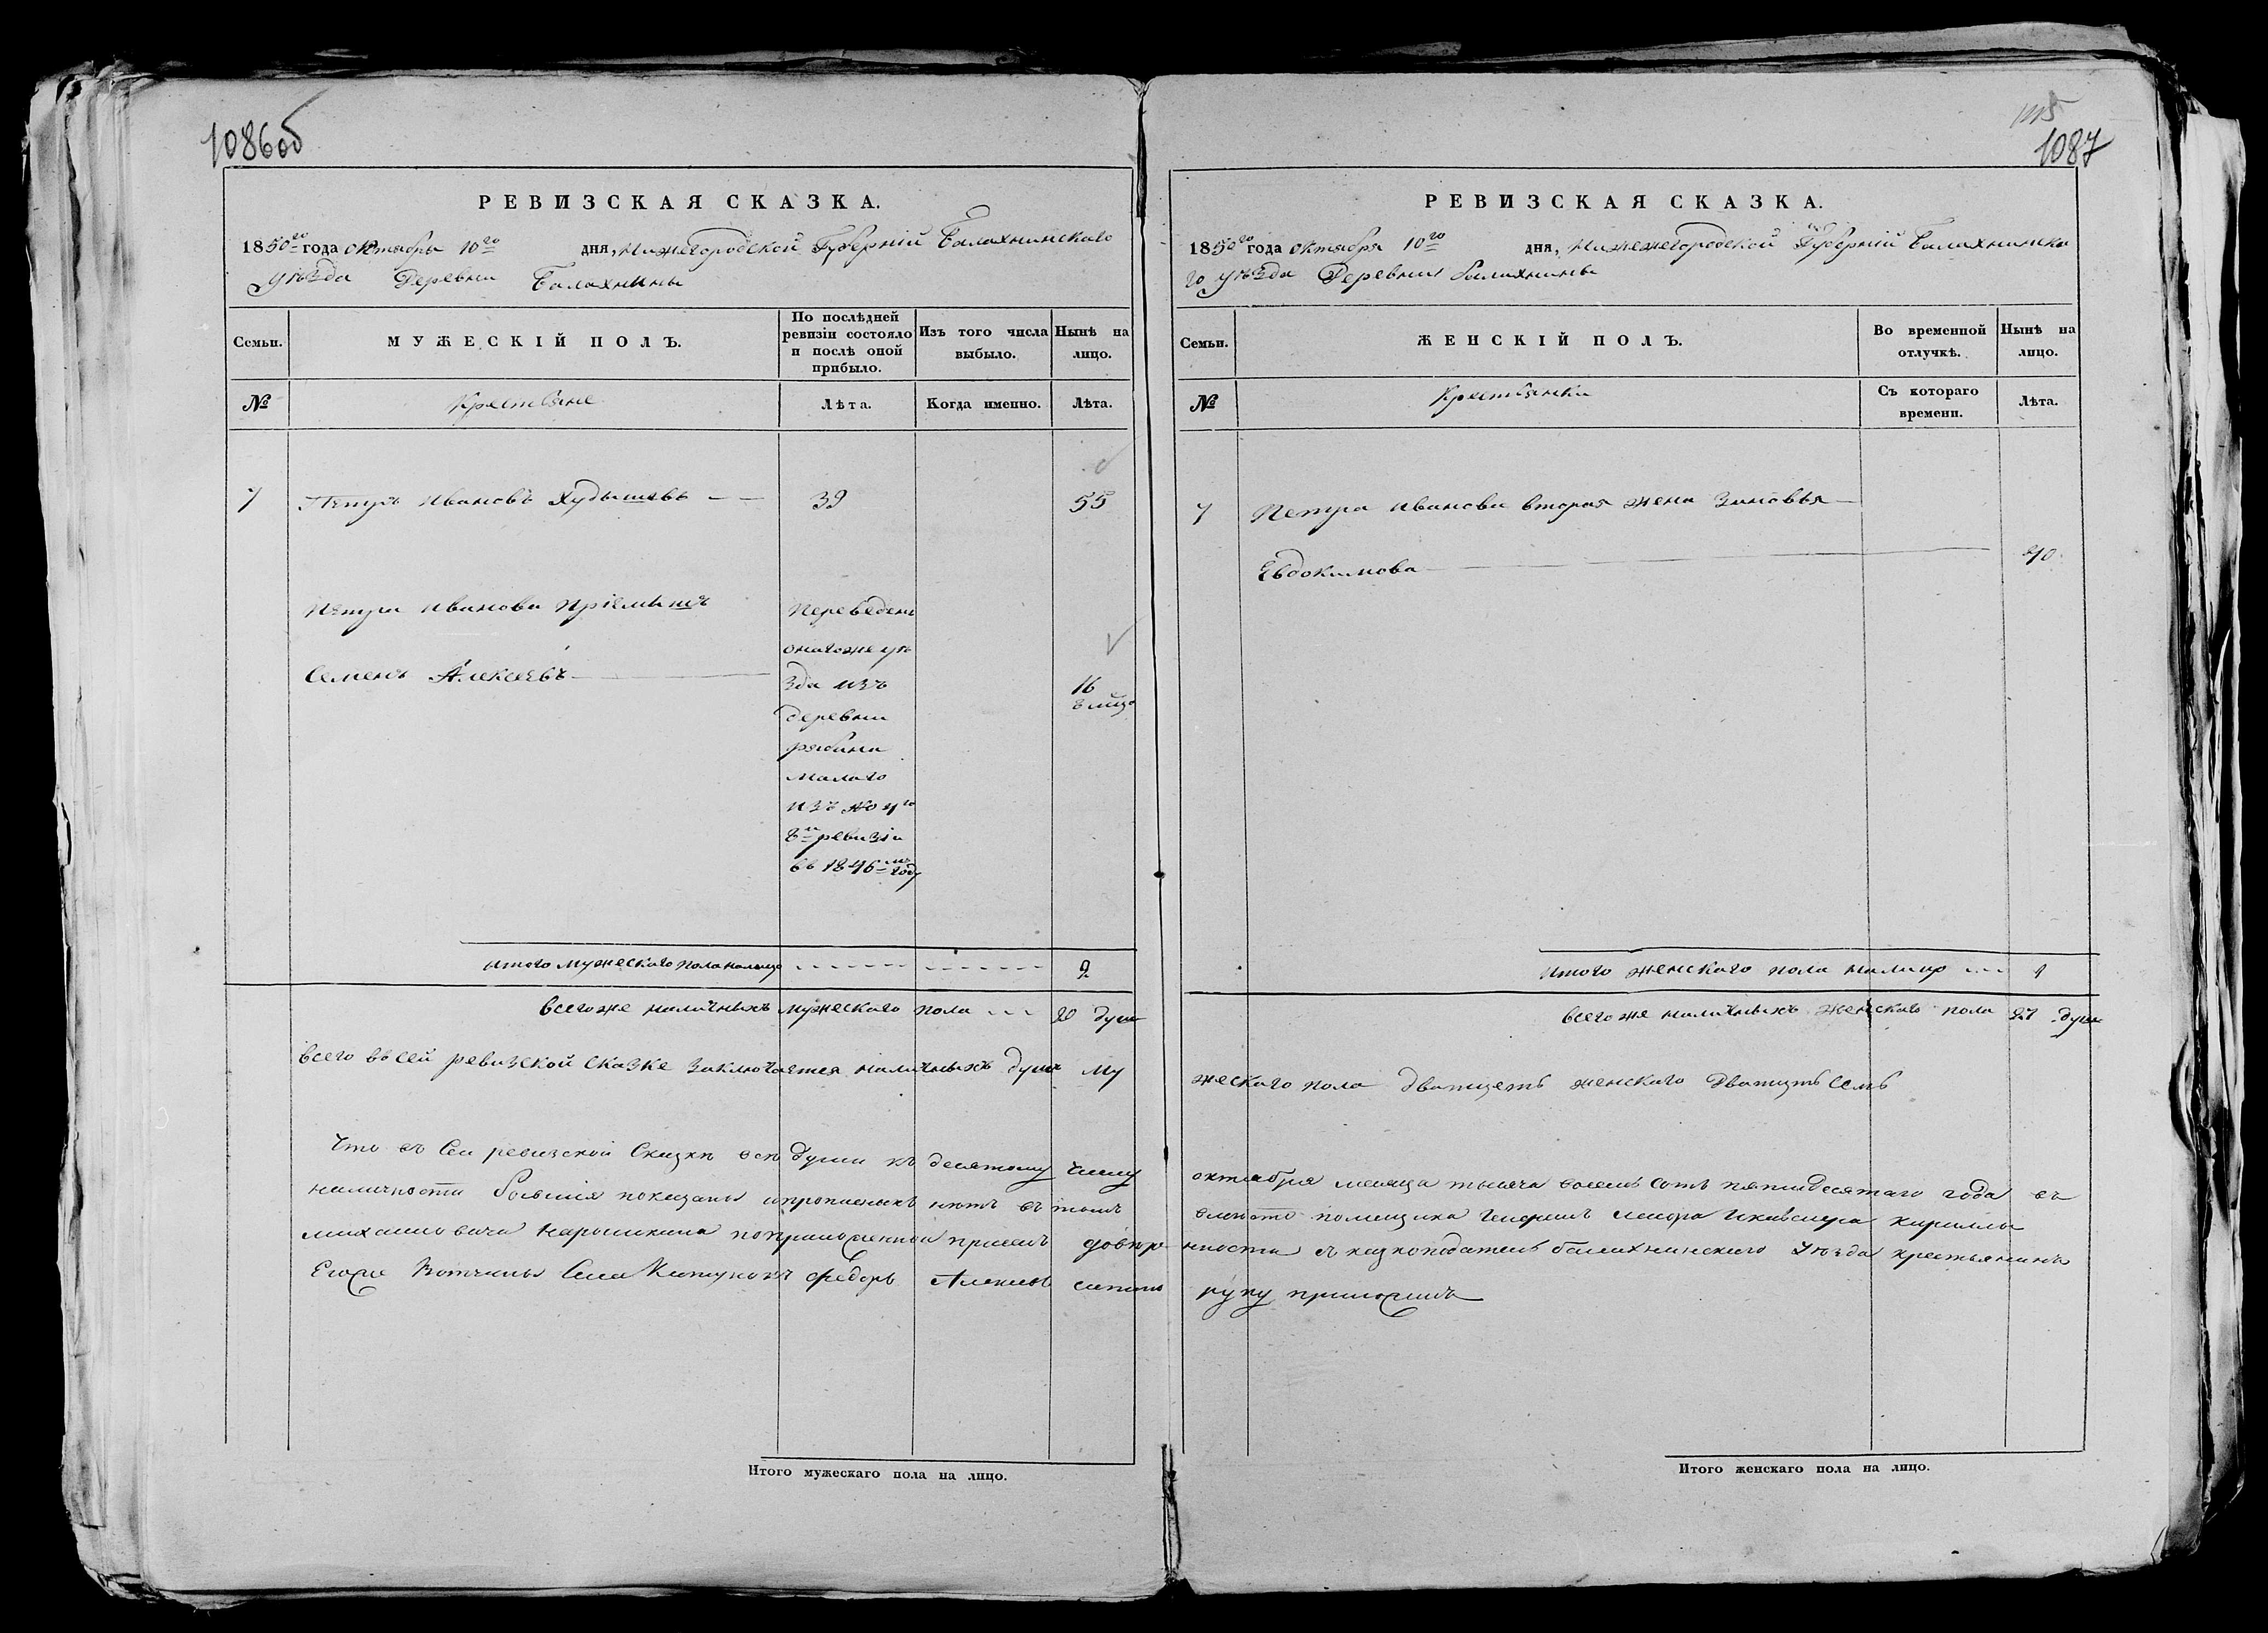 1086об
РЕВИЗСКАЯ СКАЗКА.
1850го года октября 10го дня, Нижегородской Губерній Балахнинскаго
уѣзда Деревни Балахнины
Семьи.
МУЖЕСКІЙ ПОЛЪ.
По послѣдней ревизіи состояло и послѣ оной прибыло.
Изъ того числа выбыло.
Нынѣ на лицо.
№
Крестьяне
Лѣта.
Когда именно.
Лѣта.
7 Петръ Ивановъ Худышевъ 39 55
Петра Иванова пріемышъ
Семенъ Алексеевъ
Переведенъ
онагоже уѣ
зда изъ
деревни
рябина
малаго
изъ №
8й ревизіи
въ 1846мъ году
16
в лицо
итого мужескаго пола налицо 2
всегоже наличныхъ мужескаго пола 20 душъ
всего въ сей ревизской сказке заключается наличныхъ душъ му
Что въ сей ревизской Сказкѣ всѣ души къ десятому числу
наличности бывшія показаны и прописныхъ нѣтъ въ томъ
михаиловича Нарышкина по приложенной при семъ довѣре
Егоже Вотчины Села Катунокъ Федоръ Алексеев
1087
РЕВИЗСКАЯ СКАЗКА.
1850го года октября 10го дня, Нижежегородской Губерній Балахнинска
го уѣзда Деревни балахнины
Семьи.
ЖЕНСКІЙ ПОЛЪ.
Во временной отлучкѣ.
Нынѣ на лицо.
№
Крестьянки
Съ котораго времени.
Лѣта.
7 Петра Иванова вторая жена Зиновья
Евдокимова 40
итого женскаго пола налицо 1
всего же наличныхъ женскаго пола 27 душъ
жескаго пола дватцеть женскаго дватцеть семь
октября месяца тысяча восемь сотъ пятидесятаго года въ
помещика Генералъ Кириллы
ности балахнинскаго Уѣзда крестьянинъ
руку приложилъ
Итого мужескаго пола на лицо.
Итого женскаго пола на лицо.